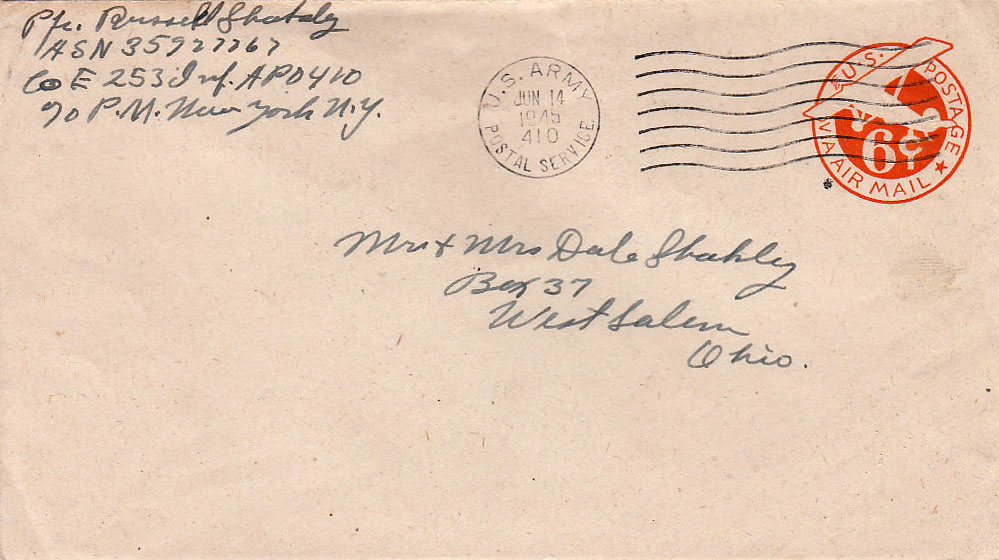 Pfc. Russell Shakley
ASN 35927767
Co E 253 Inf. APO 410
c/o P.M. New York N.Y.
U.S. ARMY
JUN 14
1945
410
POSTAL SERVICE
U.S. POSTAGE
6¢
VIA AIR MAIL
Mr + Mrs Dale Shakley
Box 37
West Salem
Ohio.